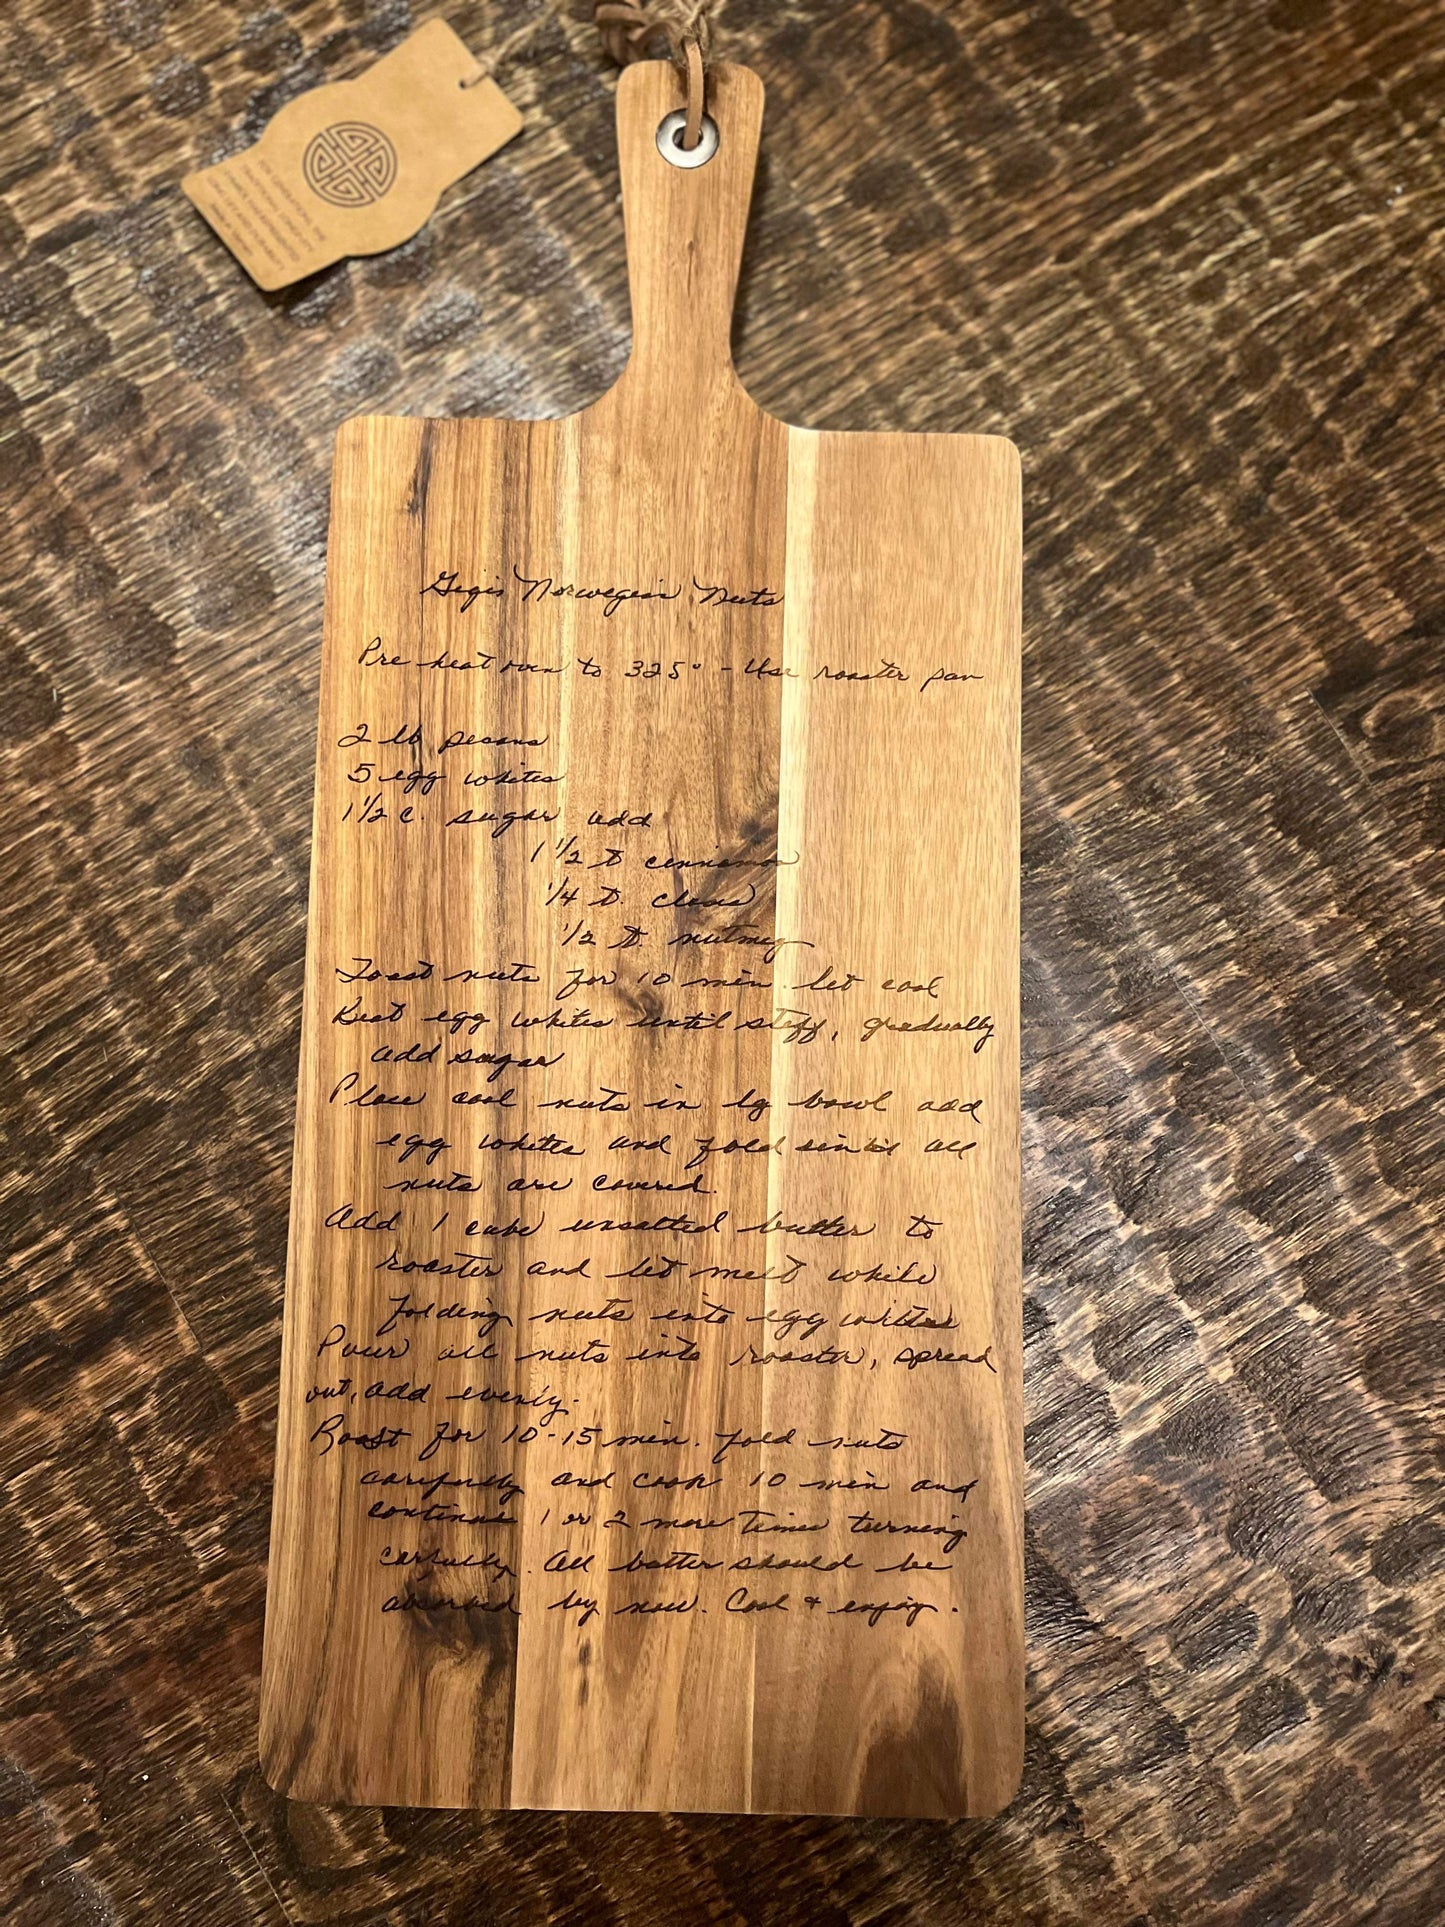 Gigis Norwegian Nuts
Pre heat oven to 325° - Use roaster pan
2 lb pecans
5 egg whites
1 1/2 c. sugar add
1 1/2 t cinnamon
1/4 t. cloves
1/2 t. nutmeg
Toast nuts for 10 min. let cool
Beat egg whites until stiff, gradually
add sugar
Place cool nuts in lg bowl add
egg whites and fold in til all
nuts are covered.
Add 1 cube unsalted butter to
roaster and let melt while
folding nuts into egg whites
Pour all nuts into roaster, spread
out, add evenly.
Roast for 10-15 min. fold nuts
carefully and cook 10 min and
continue 1 or 2 more times turning
carfully. All butter should be
absorbed by now. Cool + enjoy.